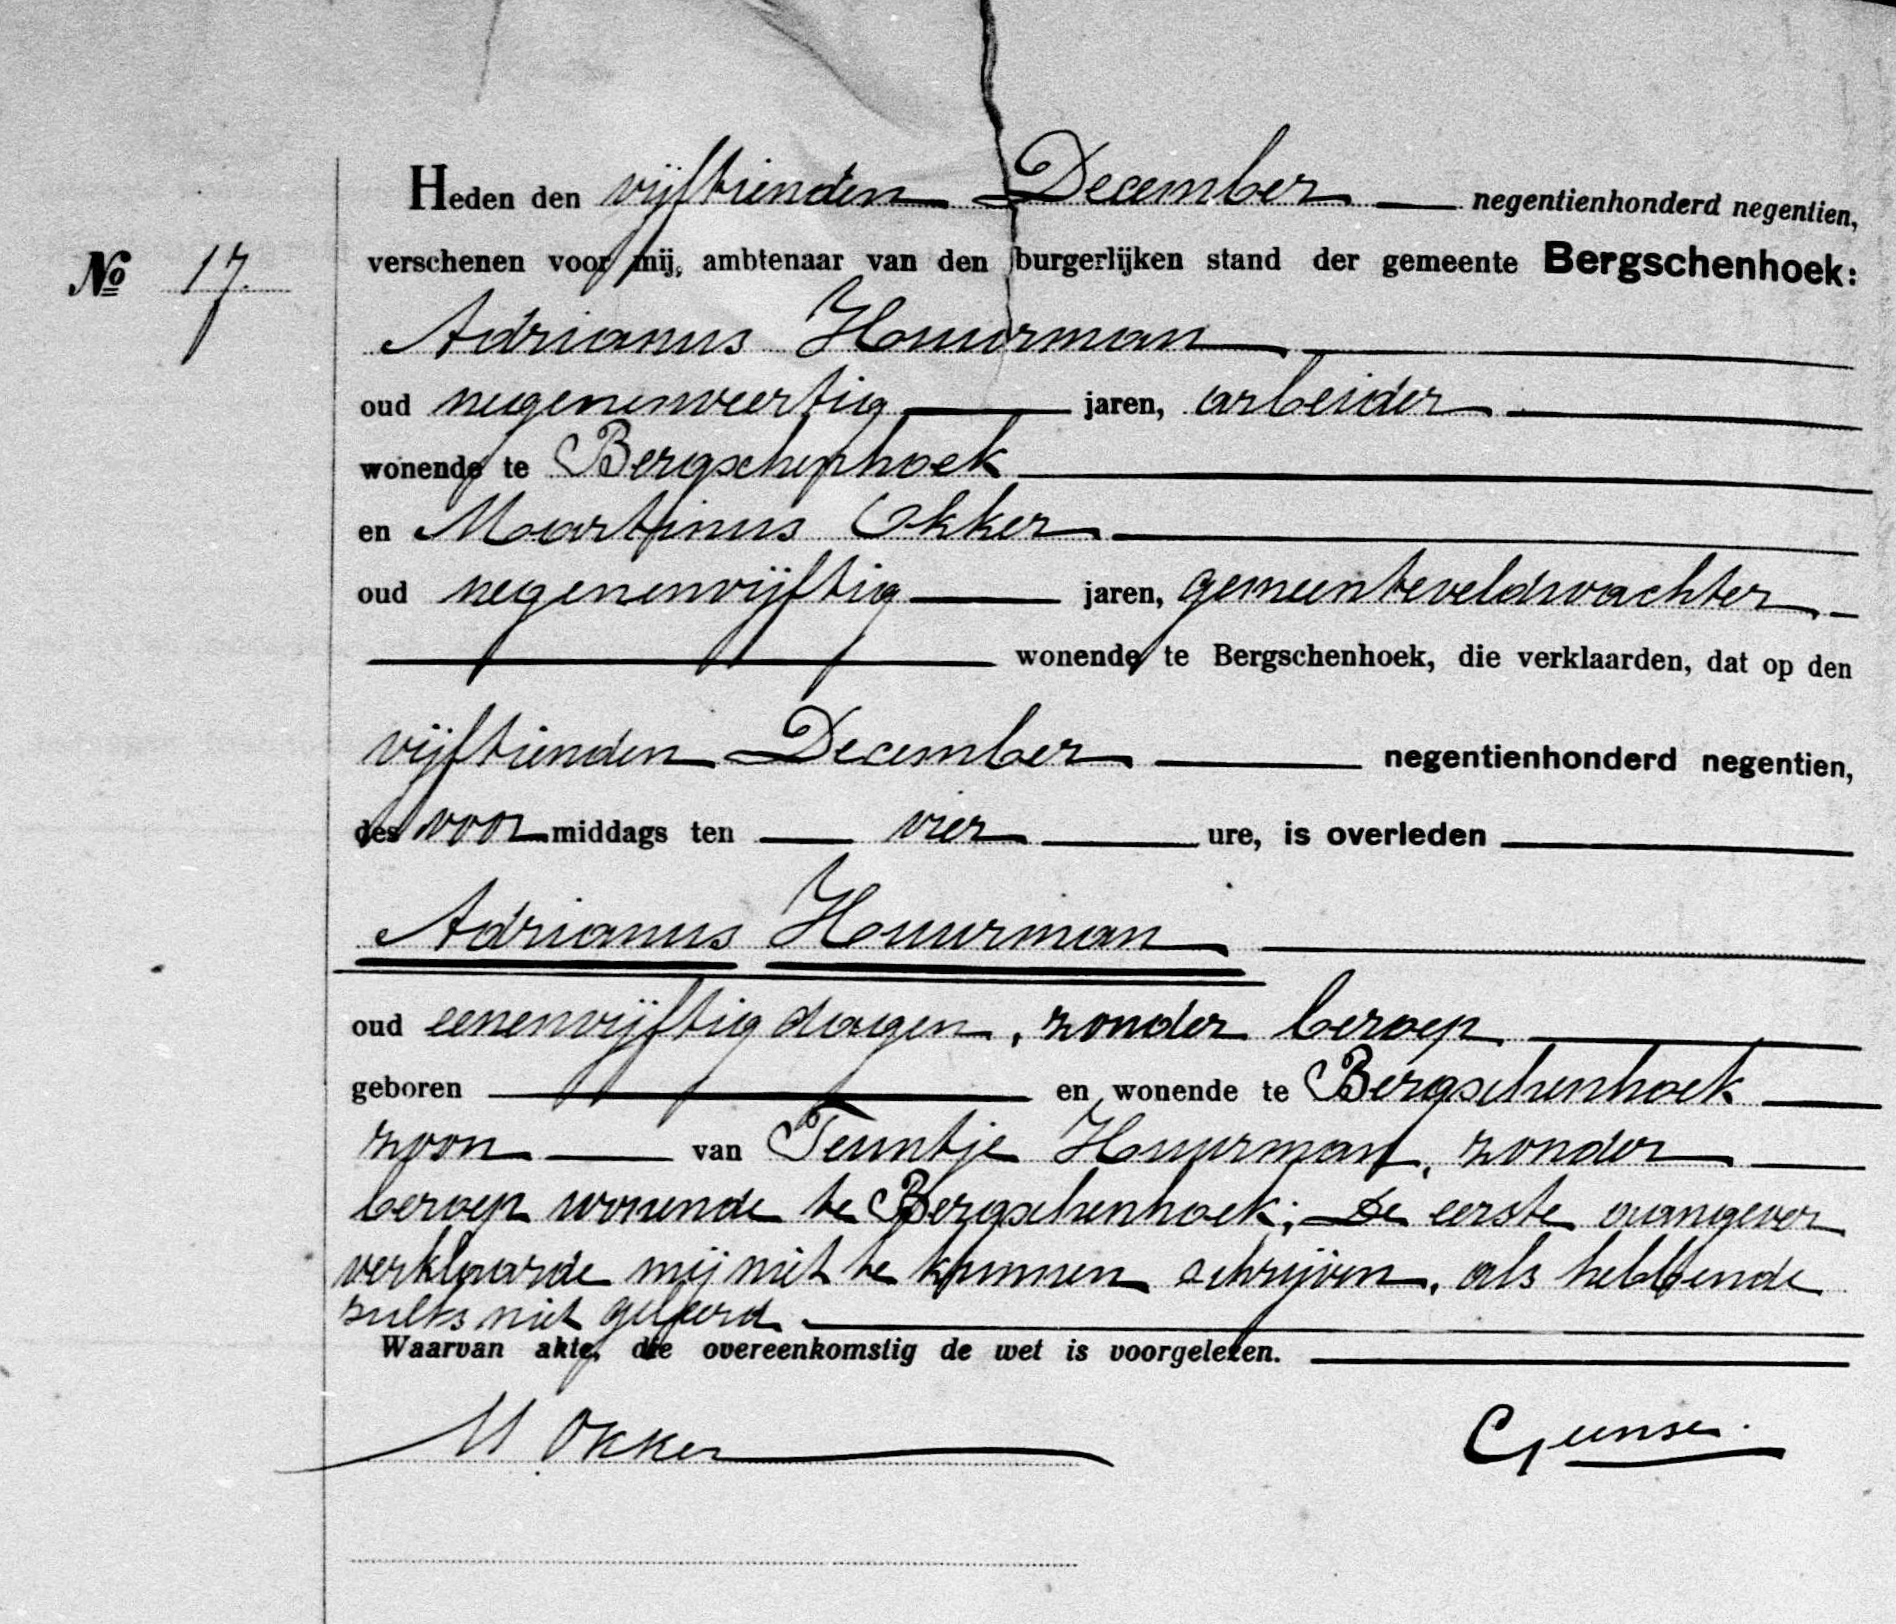 Heden den vijftienden December negentienhonderd negentien,
No 17. verschenen voor mij, ambtenaar van den burgerlijken stand der gemeente Bergschenhoek:
Adrianus Huurman
oud negenenveertig jaren, arbeider
wonende te Bergschenhoek
en Martinus Okker
oud negenenvijftig jaren, gemeenteveldwachter
wonende te Bergschenhoek, die verklaarden, dat op den
vijftienden December negentienhonderd negentien,
des voor middags ten vier ure, is overleden
Adrianus Huurman
oud eenenvijftig dagen, zonder beroep
geboren en wonende te Bergschenhoek
zoon van Teuntje Huurman, zonder
beroep wonende te Bergschenhoek; De eerste aangever
verklaarde mij niet te kunnen schrijven, als hebbende
zulks niet geleerd.
Waarvan akte, die overeenkomstig de wet is voorgelezen.
M Okker